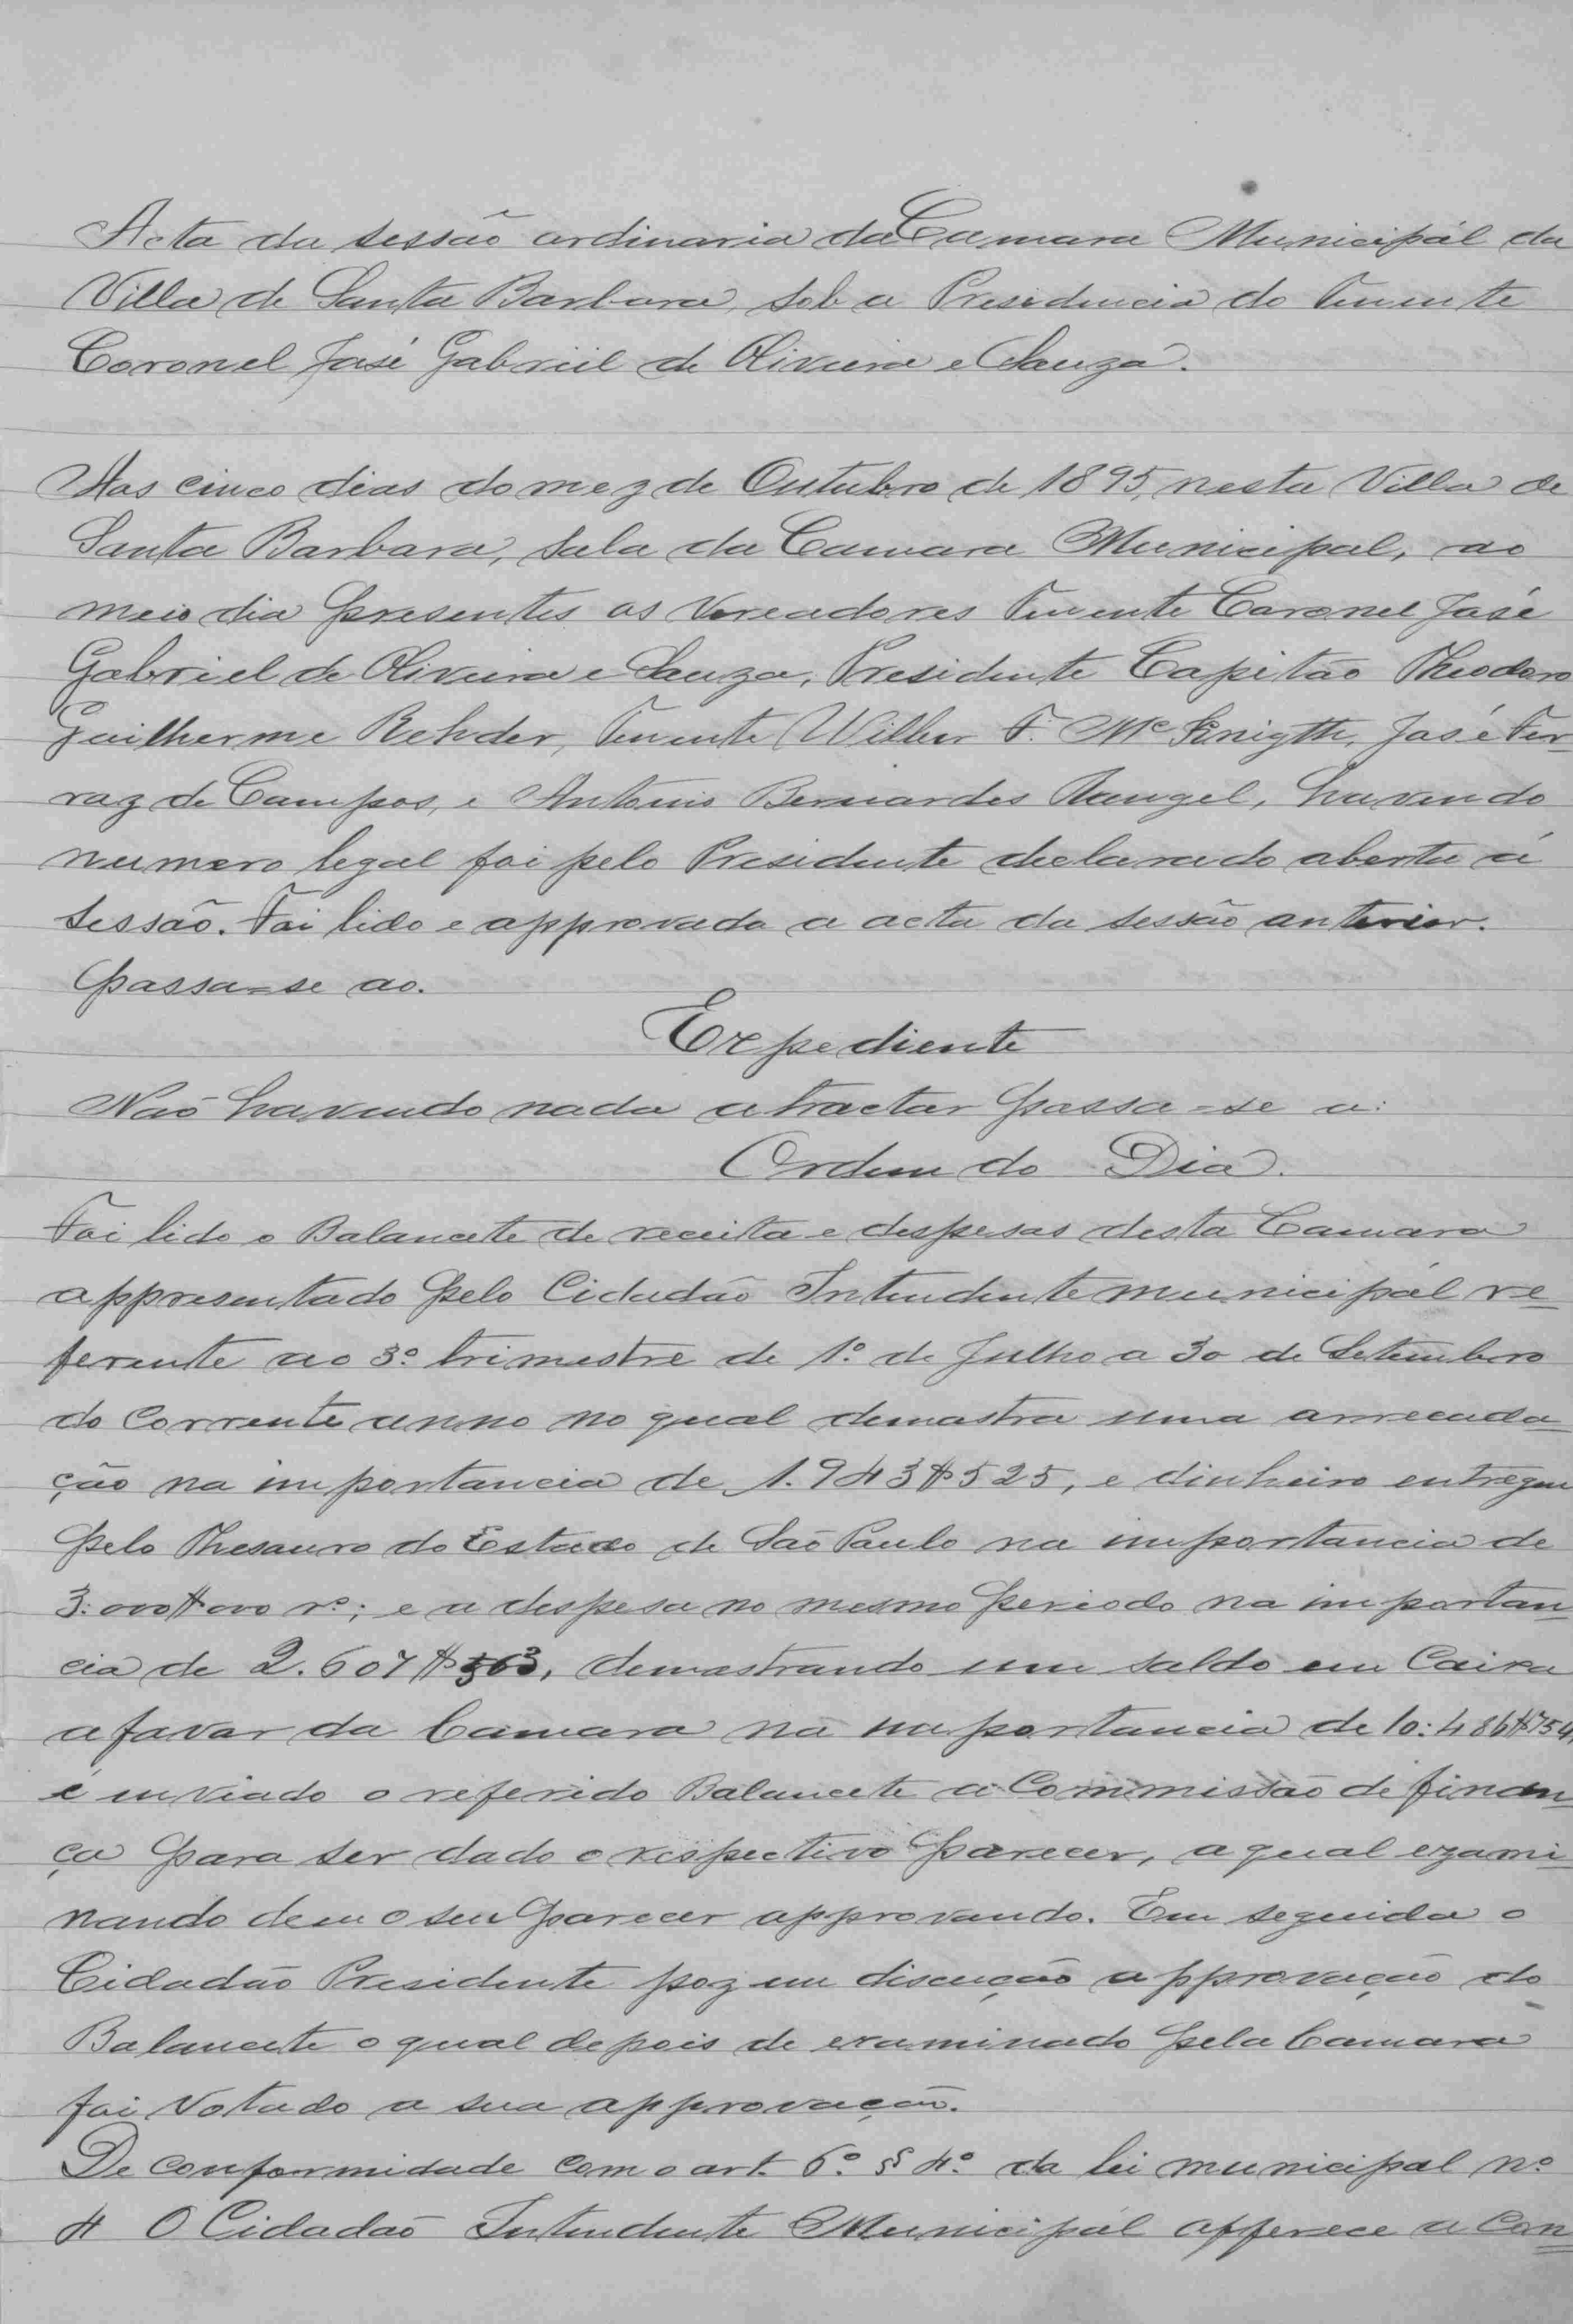 Acta da sessão ordinaria da Camara Municipál da
Villa de Santa Barbara, sob a Presidencia do Tenente
Coronel José Gabriel de Oliveira e Souza.
Aos cinco dias do mez de Outubro de 1895, nesta Villa de
Santa Barbara, sala da Camara Municipal, ao
meio dia presentes os Vereadores Tenente Coronel José
Gabriel de Oliveira e Souza, Presidente Capitão Theodoro
Guilherme Rehder, Tenente Wilber F. Mc Knigth, José Fer=
raz de Campos, e Antonio Bernardes Rangel, havendo
numero legal foi pelo Presidente declarado aberta á
sessão. Foi lido e approvada a acta da sessão anterior.
Passa=se ao.
Expediente
Não havendo nada a tractar passa=se a:
Ordem do Dia.
Foi lido o Balancete de receita e despesas desta Camara
appresentado pelo Cidadão Intendente municipál re=
ferente ao 3º trimestre de 1º de Julho a 30 de Setembro
do corrente anno no qual demostra uma arrecada=
ção na importancia de 1.943$525, e dinheiro entregue
pelo Thesouro do Estado de São Paulo na importancia de
3:000$000 rs; e a despesa no mesmo periodo na importan=
cia de 2.607$563, demostrando um saldo em Caixa
a favor da Camara na importancia de 10:486$754,
é enviado o referido Balancete a Commissão de finan=
ça para ser dado o respectivo parecer, a qual exami=
nando deu o seu parecer approvando. Em seguida o
Cidadão Presidente poz em discução a approvação do
Balancete o qual depois de examinado pela Camara
foi votado a sua approvação.
De conformidade com o art. 6º § 4º da lei municipal nº
4 O Cidadão Intendente Municipál offerece a con=